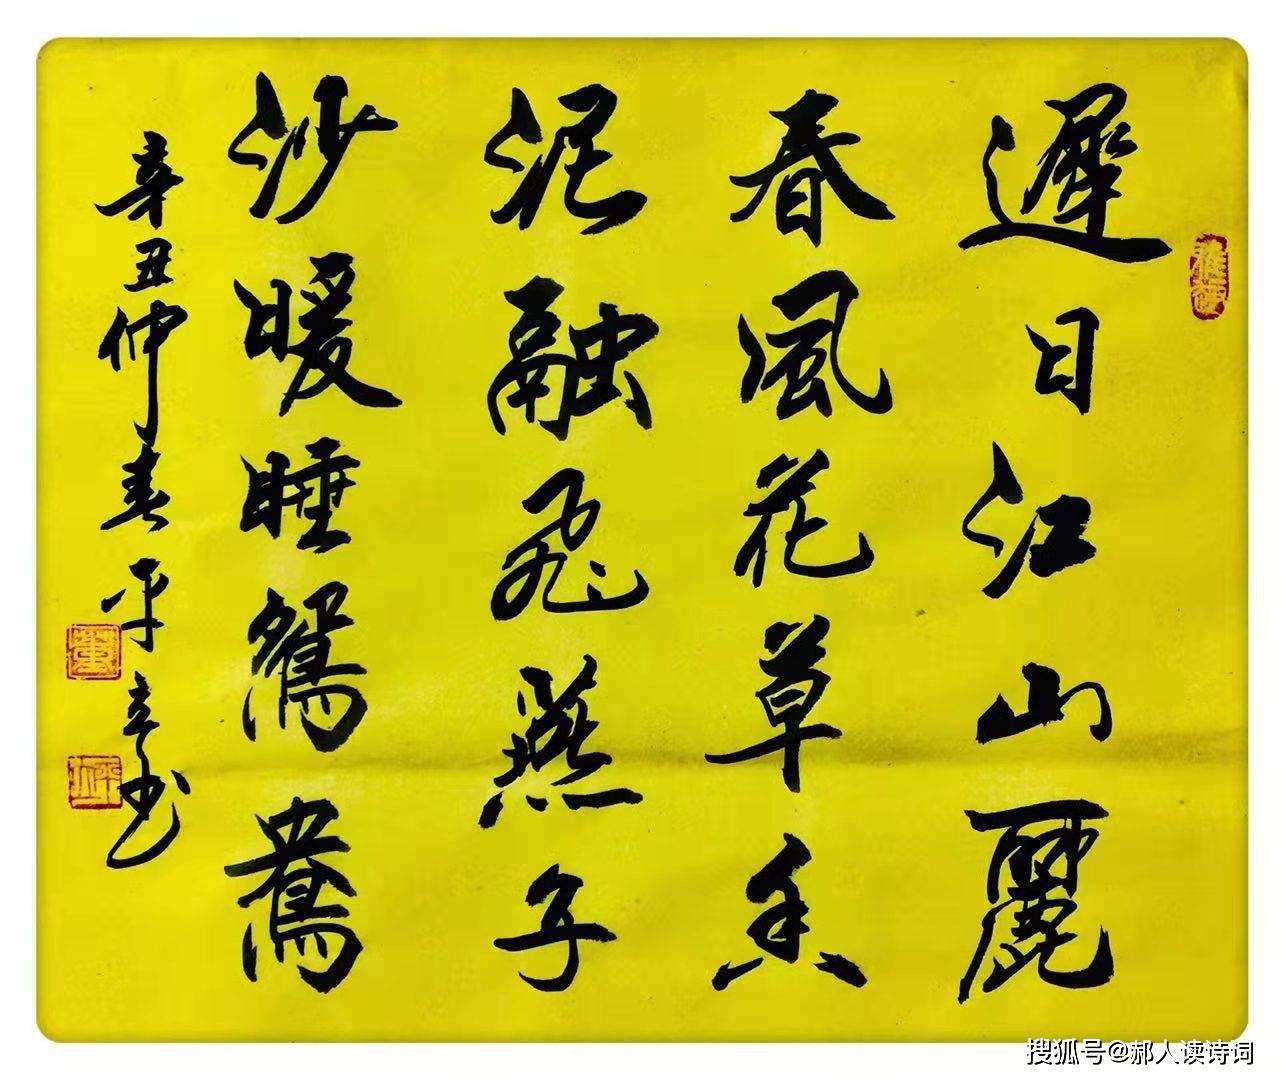 遲日江山麗
春風花草香
泥融飛燕子
沙暖睡鴛鴦
辛丑仲春平辛书
搜狐号@郝人读诗词